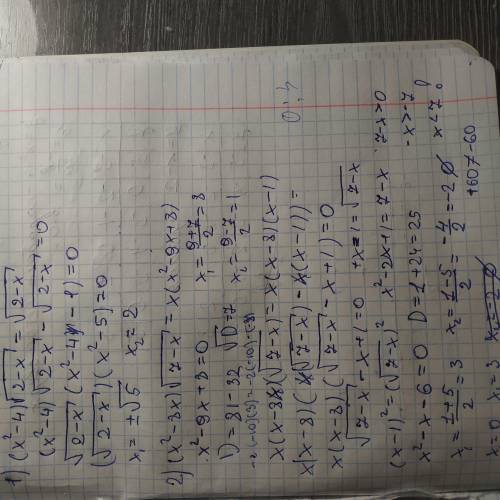 1) (x²-4)√2-x = √2-x
(x²-4)√2-x - √2-x = 0
√2-x (x²-4-1) = 0
(√2-x)(x²-5) = 0
x₁ = ±√5 x₂ = 2
2) (x²-8x)√7-x = x(x²-9x+8)
x²-9x+8=0 x₁ = 9+7/2 = 8
D = 81-32 √D=7 x₂ = 9-7/2 = 1
x(x-8)(√7-x) = x(x-8)(x-1)
x(x-8)(√7-x - (x-1)) =
x(x-8)(√7-x - x+1) = 0
√7-x - x+1 = 0 +x-1 = √7-x
(x-1)² = (√7-x)² x²-2x+1 = 7-x 7-x>0
x²-x-6=0 D=1+24=25 -x>-7
x₁ = 1+5/2 = 3 x₂ = 1-5/2 = -4/2 = -2 ∅ x<7!
x=0 x=3